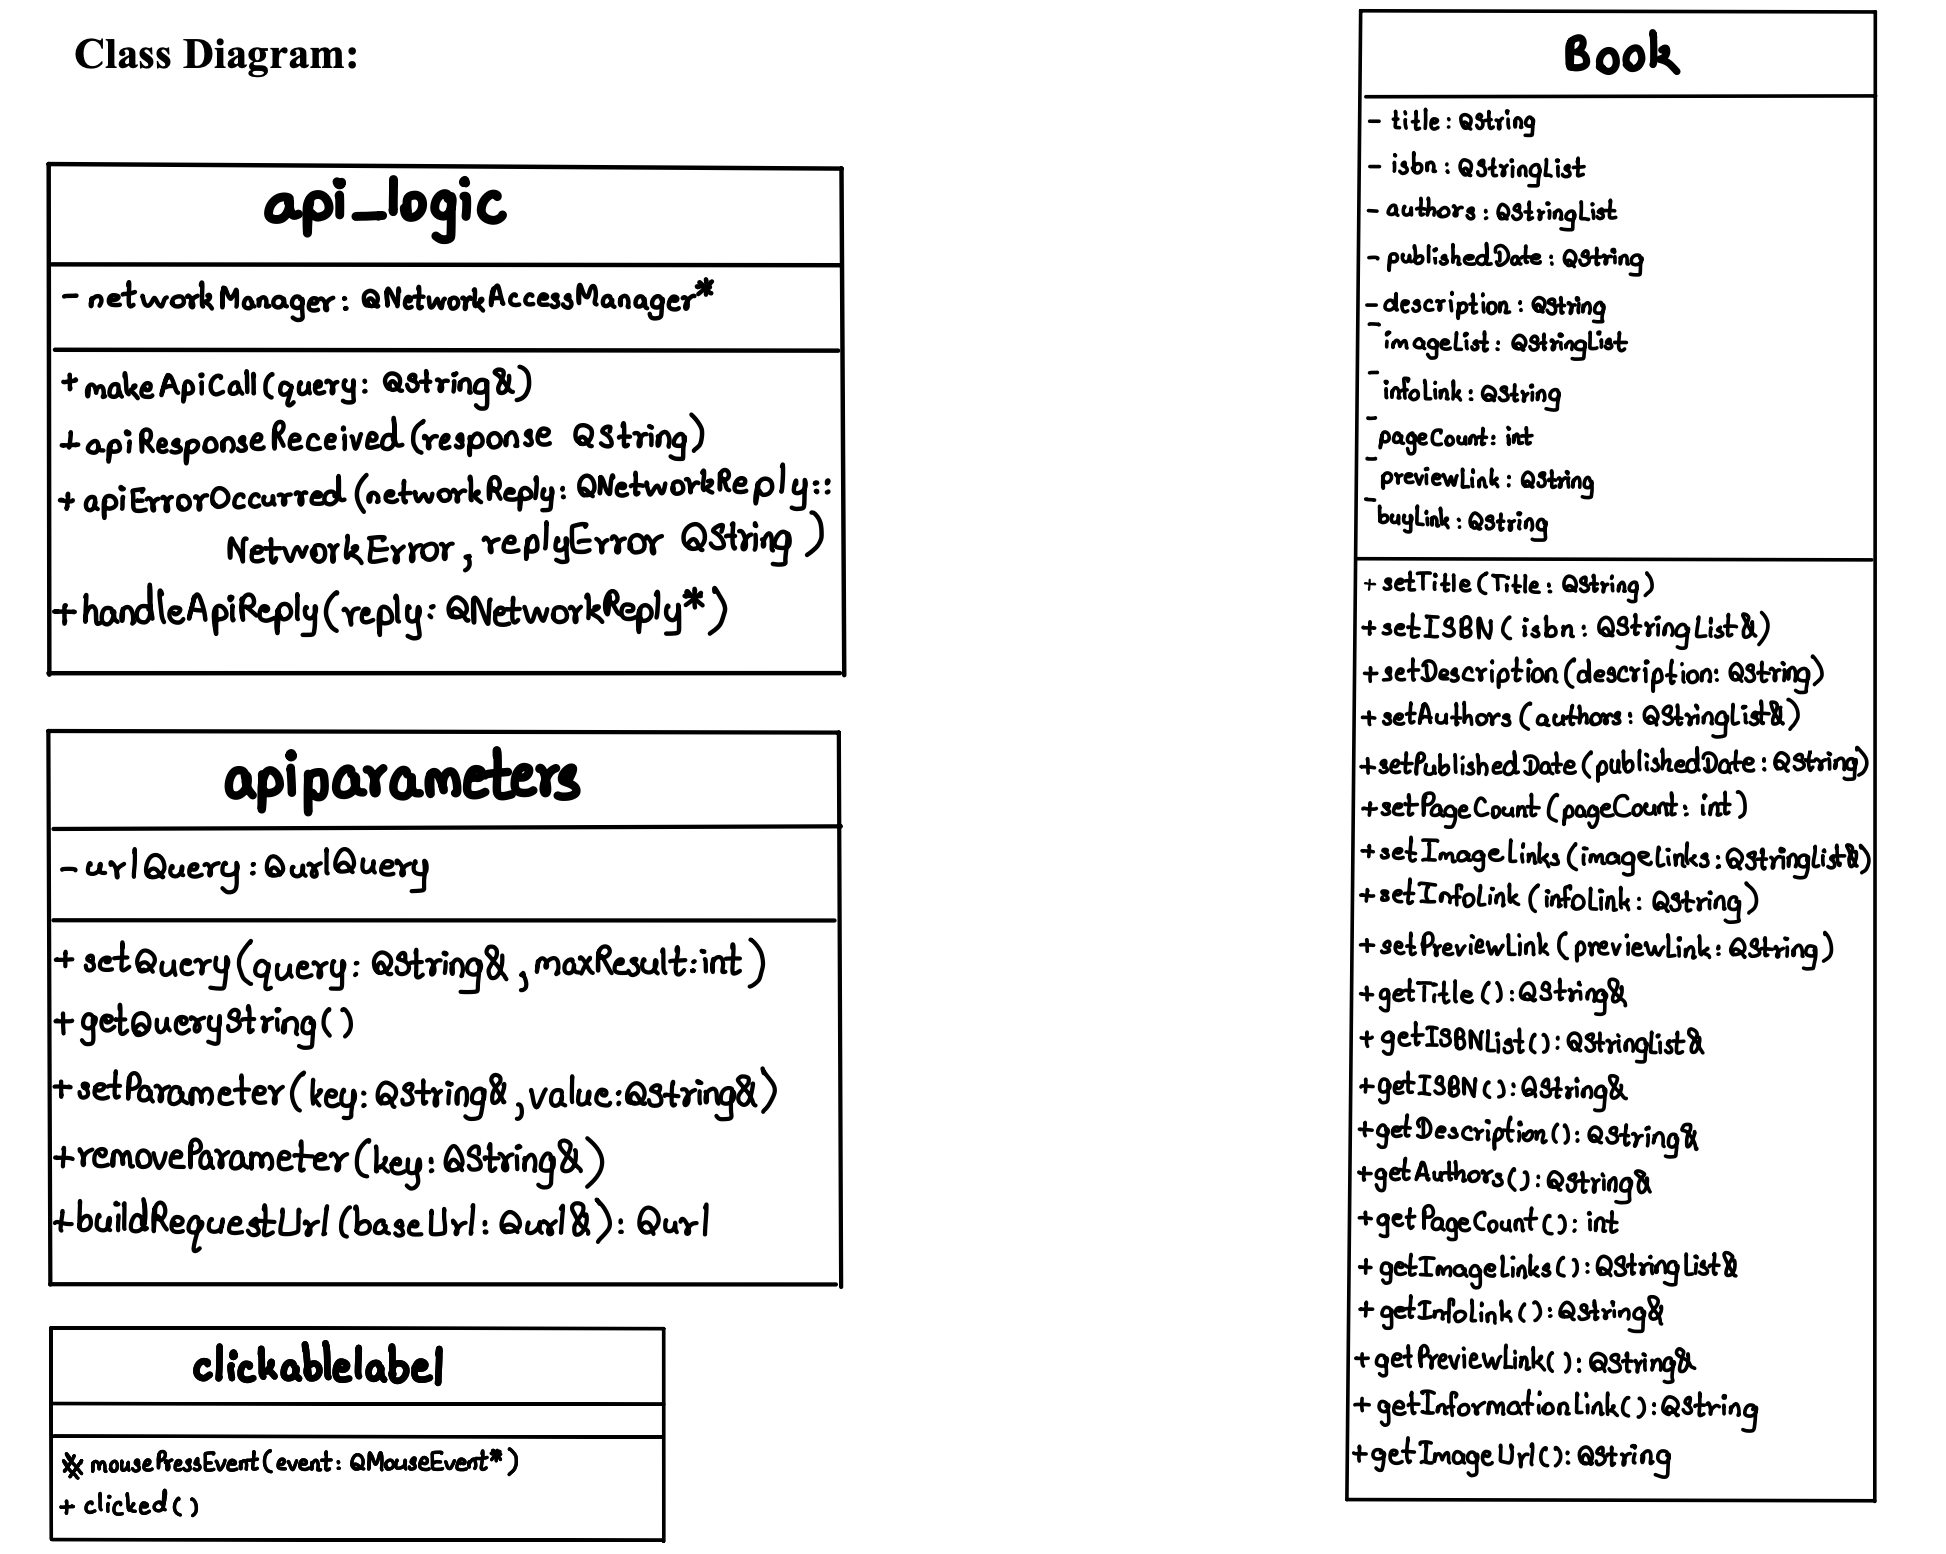 Class Diagram:
api_logic
- networkManager: QNetworkAccessManager*
+ makeApiCall(query: QString&)
+ apiResponseReceived(response QString)
+ apiErrorOccurred(networkReply: QNetworkReply::
NetworkError, replyError QString)
+ handleApiReply(reply: QNetworkReply*)
apiparameters
- urlQuery: QurlQuery
+ setQuery(query: QString&, maxResult: int)
+ getQueryString()
+ setParameter(key: QString&, value: QString&)
+ removeParameter(key: QString&)
+ buildRequestUrl(baseUrl: Qurl&): Qurl
clickablelabel
mousePressEvent(event: QMouseEvent*)
+ clicked()
Book
- title: QString
- isbn: QStringList
- authors: QStringList
- publishedDate: QString
- description: QString
- imageList: QStringList
- infoLink: QString
- pageCount: int
- previewLink: QString
- buyLink: QString
+ setTitle(Title: QString)
+ setISBN(isbn: QStringList&)
+ setDescription(description: QString)
+ setAuthors(authors: QStringList&)
+ setPublishedDate(publishedDate: QString)
+ setPageCount(pageCount: int)
+ setImageLinks(imageLinks: QStringList&)
+ setInfoLink(infoLink: QString)
+ setPreviewLink(previewLink: QString)
+ getTitle(): QString&
+ getISBNList(): QStringList&
+ getISBN(): QString&
+ getDescription(): QString&
+ getAuthors(): QString&
+ getPageCount(): int
+ getImageLinks(): QStringList&
+ getInfolink(): QString&
+ getPreviewLink(): QString&
+ getInformationLink(): QString
+ getImageUrl(): QString